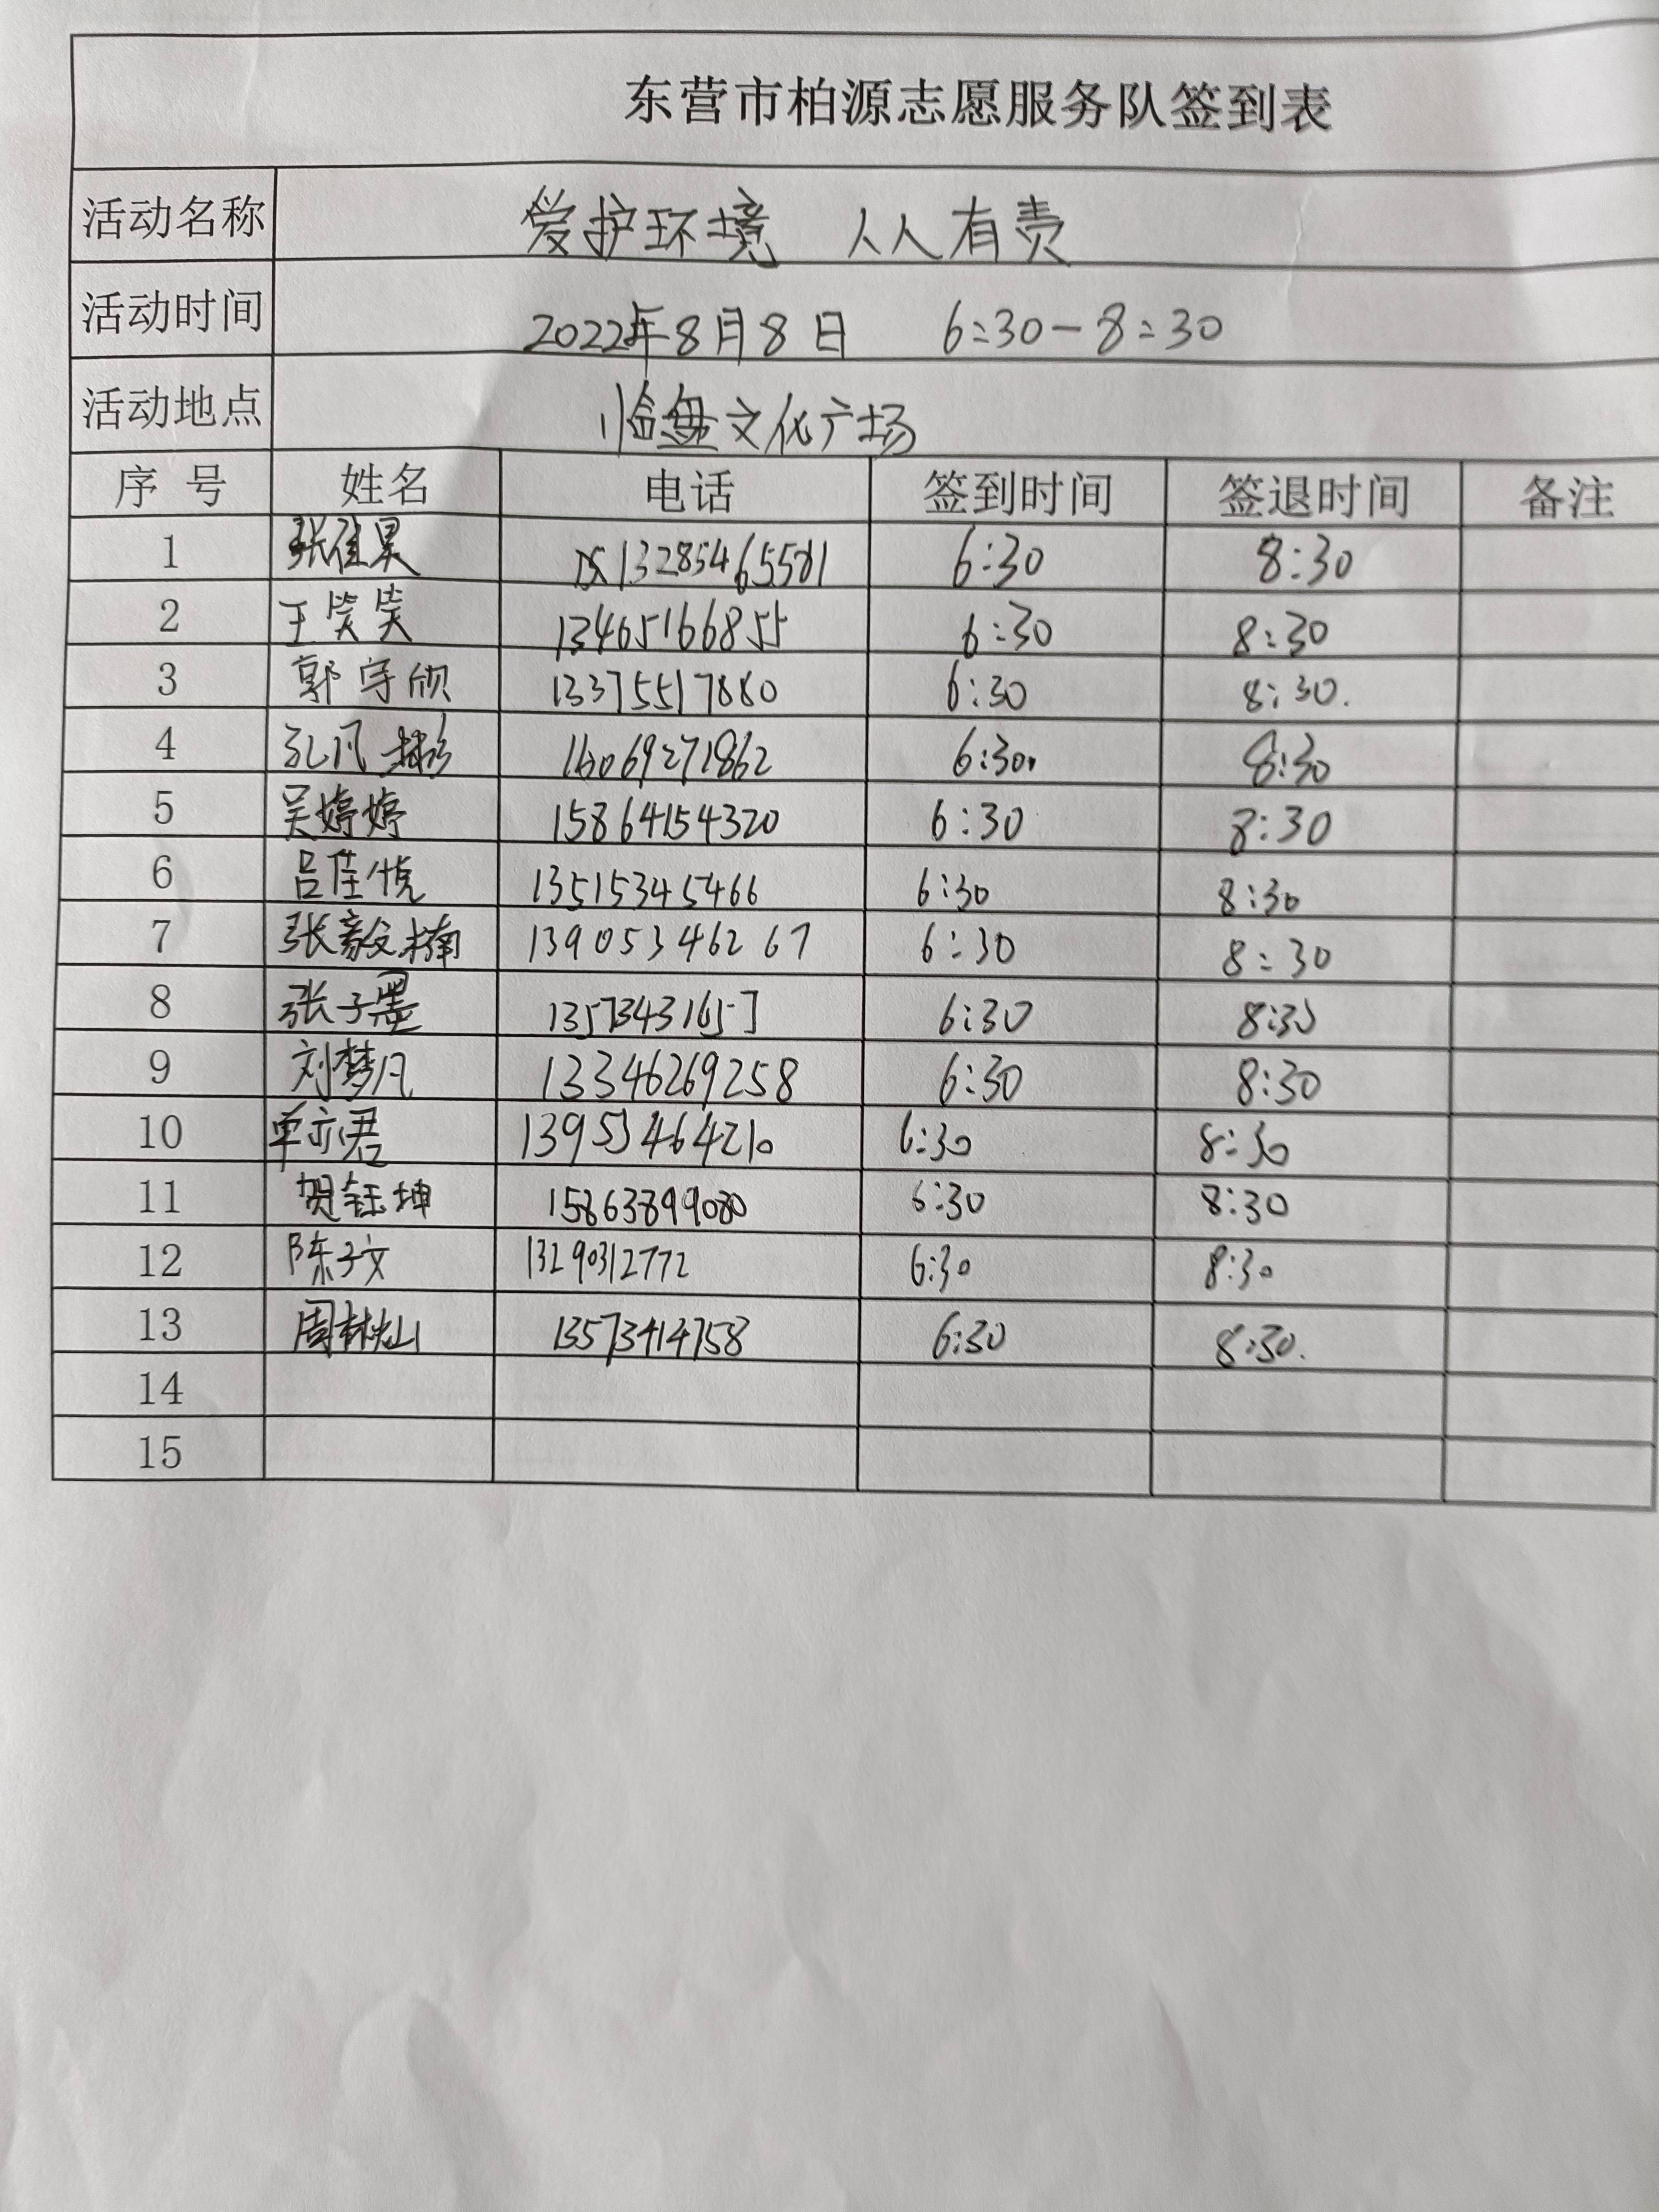 东营市柏源志愿服务队签到表
活动名称 爱护环境 人人有责
活动时间 2022年8月8日 6:30-8:30
活动地点 临盘文化广场
序号 姓名 电话 签到时间 签退时间 备注
1 张佳昊 6:30 8:30
2 王笑笑 13465166855 6:30 8:30
3 郭宇欣 13375517880 6:30 8:30.
4 孔凡彬 16069271862 6:30. 8:30
5 吴婷婷 15864154320 6:30 8:30
6 吕佳悦 13515345466 6:30 8:30
7 张毅楠 13905346267 6:30 8:30
8 张子墨 13573431657 6:30 8:30
9 刘梦凡 13346269258 6:30 8:30
10 单亦君 13953464210 6:30 8:30
11 贺钰坤 15863899080 6:30 8:30
12 陈子文 13290312772 6:30 8:30
13 周林灿 13573414758 6:30 8:30.
14
15